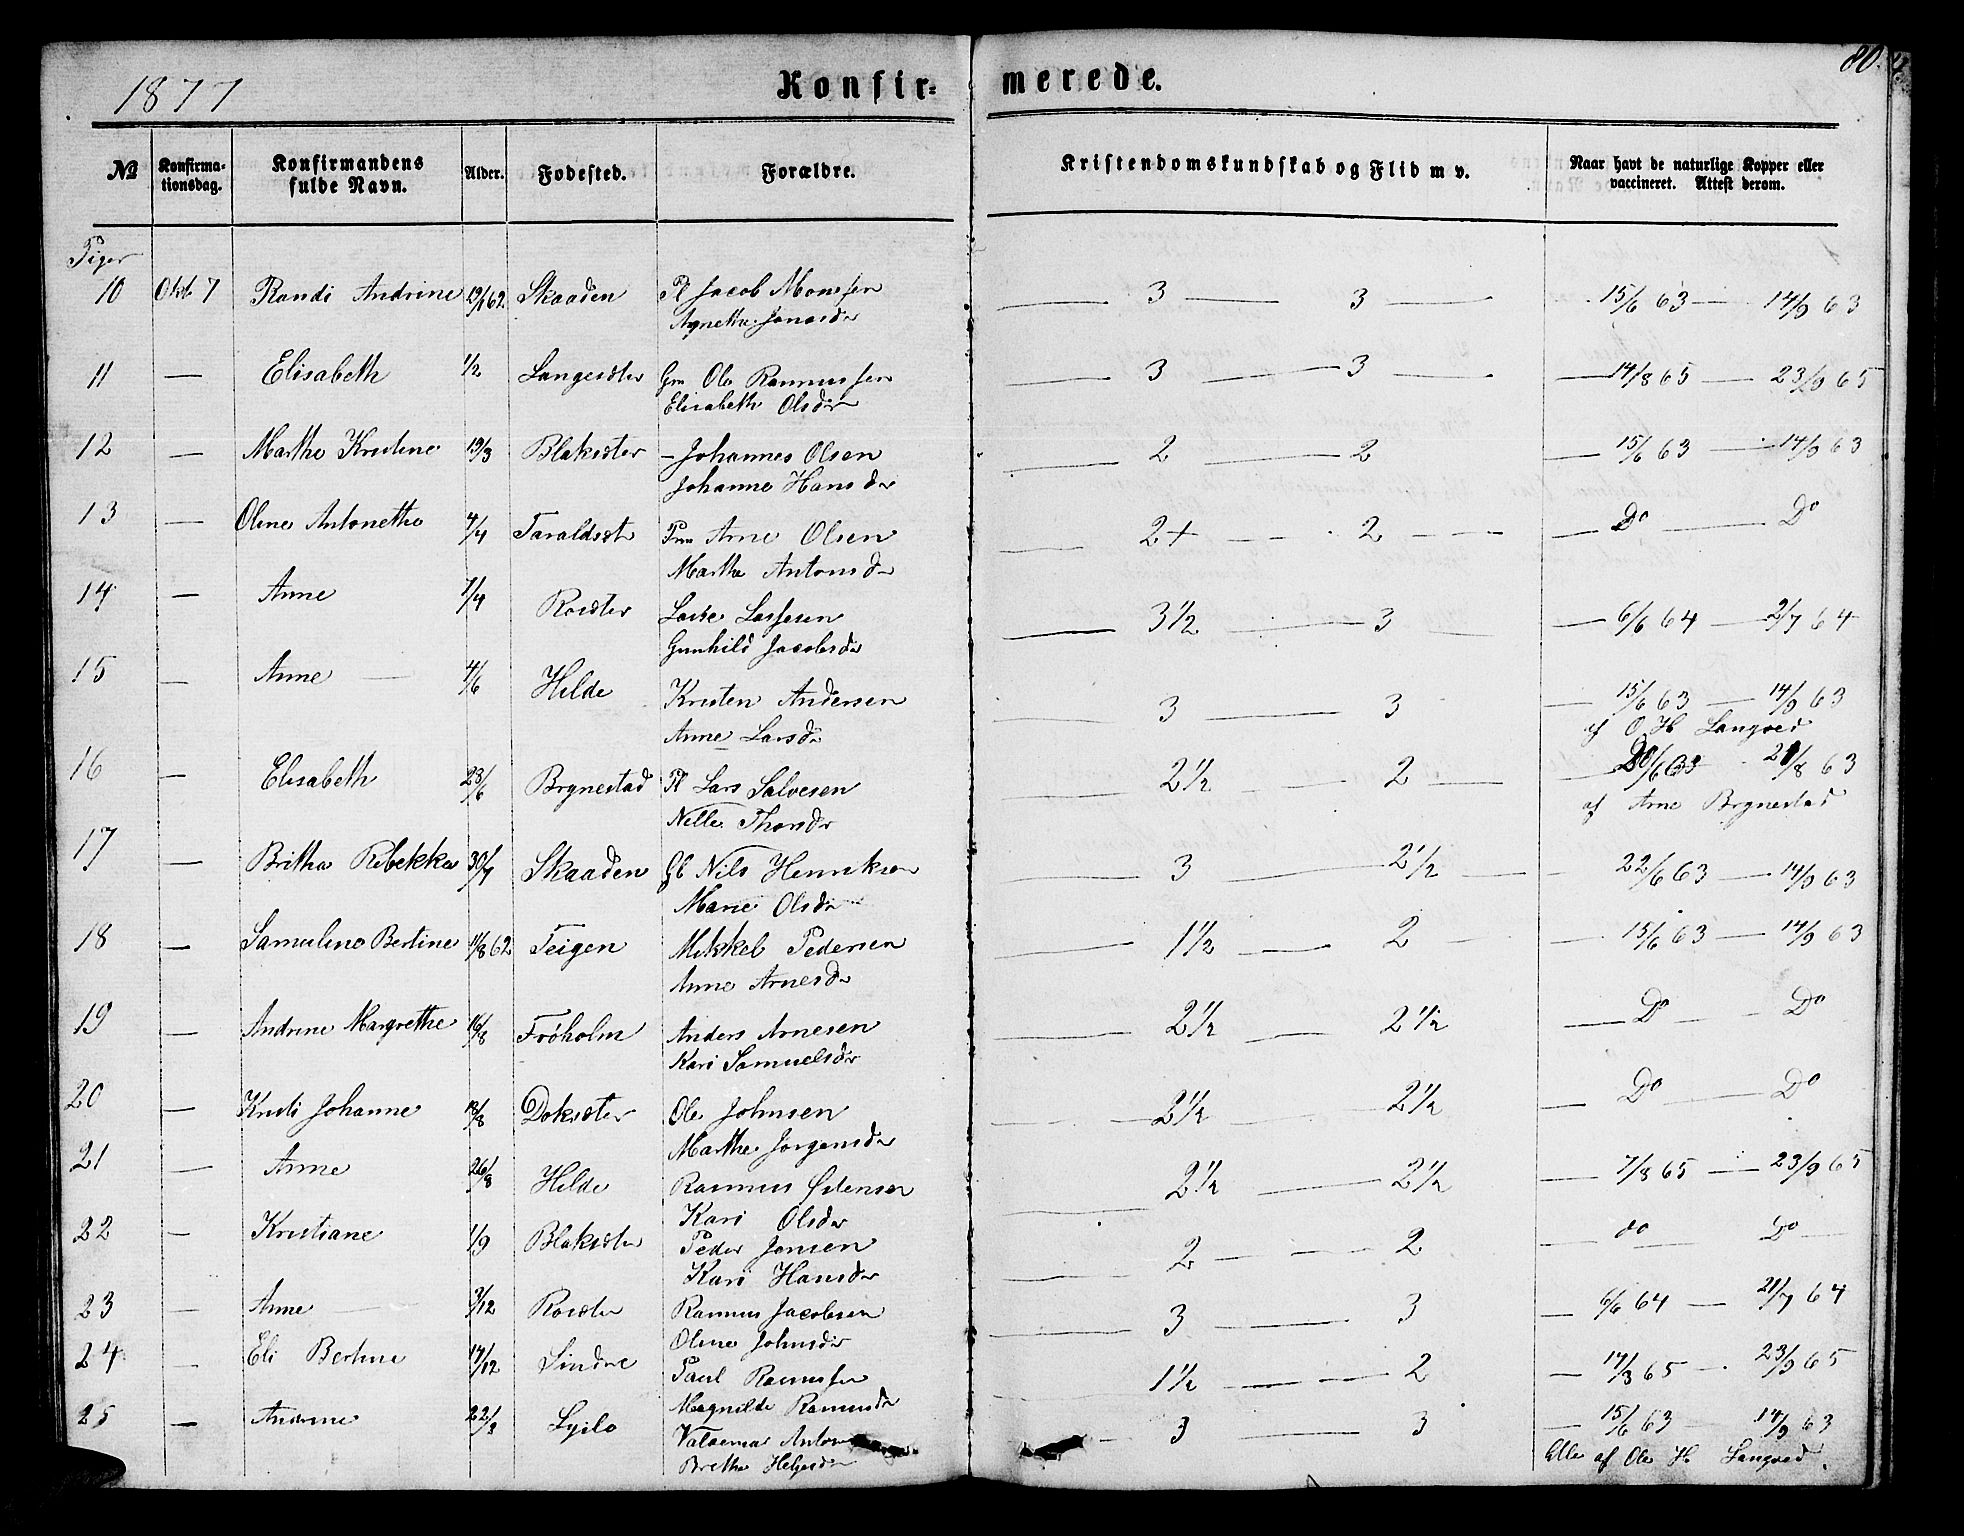 1877
Konfir=
merede.
80.
№
Konfirma-
tionsdag.
Konfirmandens
fulde Navn.
Alder.
Fødested.
Forældre.
Kristendomskundskab og Flid m v.
Naar havt de naturlige Kopper eller
vaccineret. Attest derom.
Piger
10 Okt 7 Randi Andrine 62 Skaaden Pl Jacob Monssen 3 3 15/6 63 14/9 63
Agnethe Jonasdr
11 — Elisabeth 1/2 Langesæter Gm Ole Rasmussen 3 3 14/8 65 — 23/9 65
Elisabeth Olsdr
12 — Marthe Kristine 19/3 Blaksæter — Johannes Olsen 2 2 15/6 63 — 14/9 63
Johanne Hansdr
13 — Oline Antonette 4/4 Taraldset Arne Olsen 2+ 2 — Do — Do
Marthe Antonsdr
14 — Anne 7/4 Roset Lasse Lassesen 3 1/2 3 — 6/6 64 — 2/7 64
Gunhild Jacobsdr
15 — Anne 4/6 Hilde Kristen Andersen 3 3 — 15/6 63 — 14/9 63
Anne Larsdr af O H Langved
16 — Elisabeth 23/6 Brynestad Pl Lars Salvesen 2 1/2 2 /8 63
Nelle Thorsdr af Arne Brynestad
17 — Britha Rebekka 30/7 Skaaden Gb Nils Henriksen 3 2 1/2 22/6 63 — 14/9 63
Marie Olsdr
18 — Samueline Bertine 11/8 62 Teigen Mikkel Pedersen 1 1/2 2 — 15/6 63 — 14/9 63
Anne Arnesdr
19 — Andrine Margrethe 16/8 Frøholm Anders Arnesen 2 1/2 2 1/2 — Do — Do
Kari Samuelsdr
20 — Kristi Johanne 18/8 Doksæter Ole Johnsen 2 1/2 2 1/2 — Do — Do
Marthe Jørgensdr
21 — Anne 26/8 Hilde Rasmus Østensen 2 1/2 2 1/2 — 7/8 65 — 23/9 65
Kari Olsdr
22 — Kristiane 1/9 Blaksæter Peder Jonsen 2 2 — do — Do
Kari Hansdr
23 — Anne 3/12 Roset Rasmus Jacobsen 3 3 — 6/6 64 — 21/7 64
Oline Johnsdr
24 — Eli Bertine 14/12 Sindre Paul Rasmussen 1 1/2 2 — 14/8 65 — 23/9 65
Magnilde Rasmusdr
25 — Andrine 22/3 Valdemar 3 3 — 15/6 63 14/9 63
Brithe Helgesdr Alle af Ole H Langved.